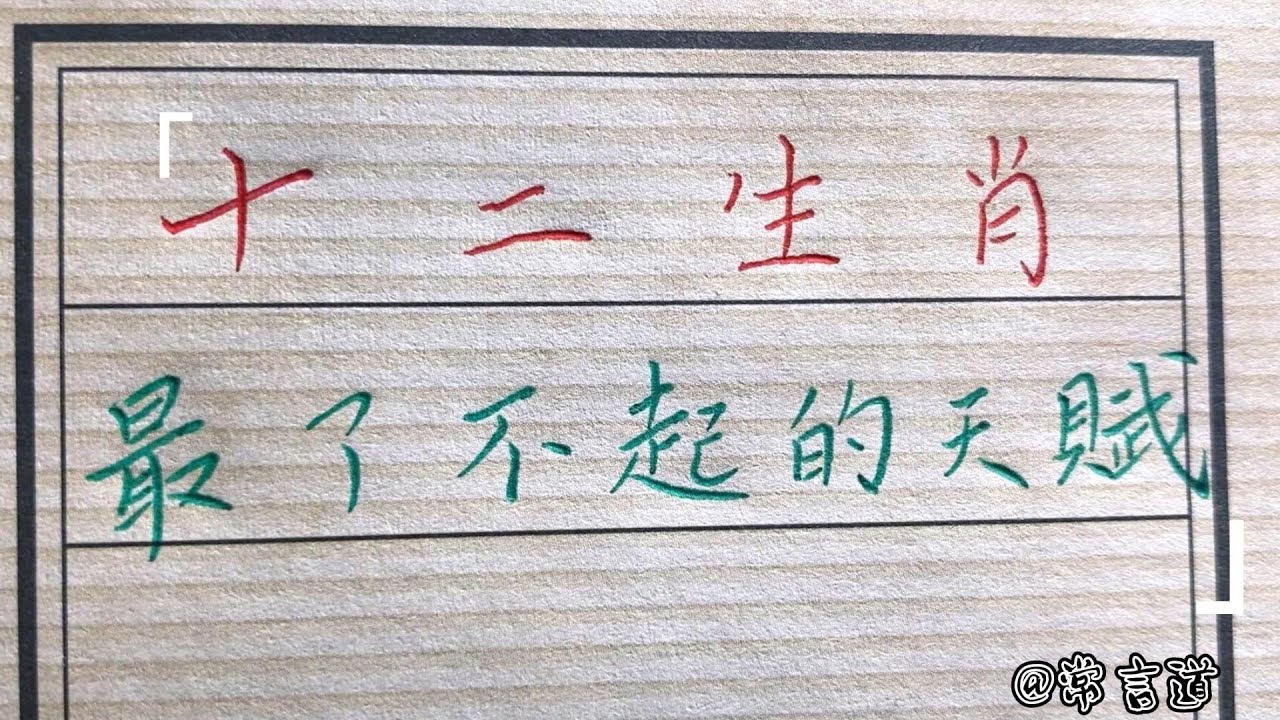 十二生肖
最了不起的天賦
@常言道